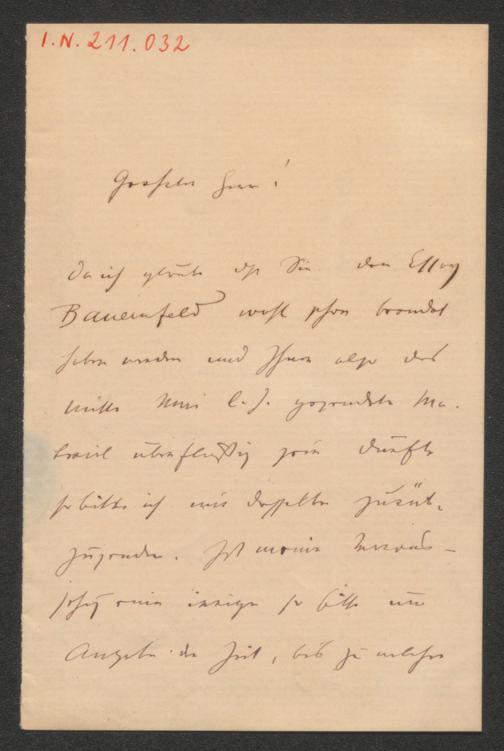 I.N. 211.032
Geehrter Herr!
Da ich glaube dß Sie den Essay
Bauernfeld wohl schon beendet
haben werden und Ihnen also das
mitte Mai l. J. gesendete Ma-
terial überflüssig sein dürfte
so bitte ich mir dasselbe zurück-
zusenden. Ist meine Voraus-
setzung eine irrige so bitte um
Angabe der Zeit, bis zu welcher